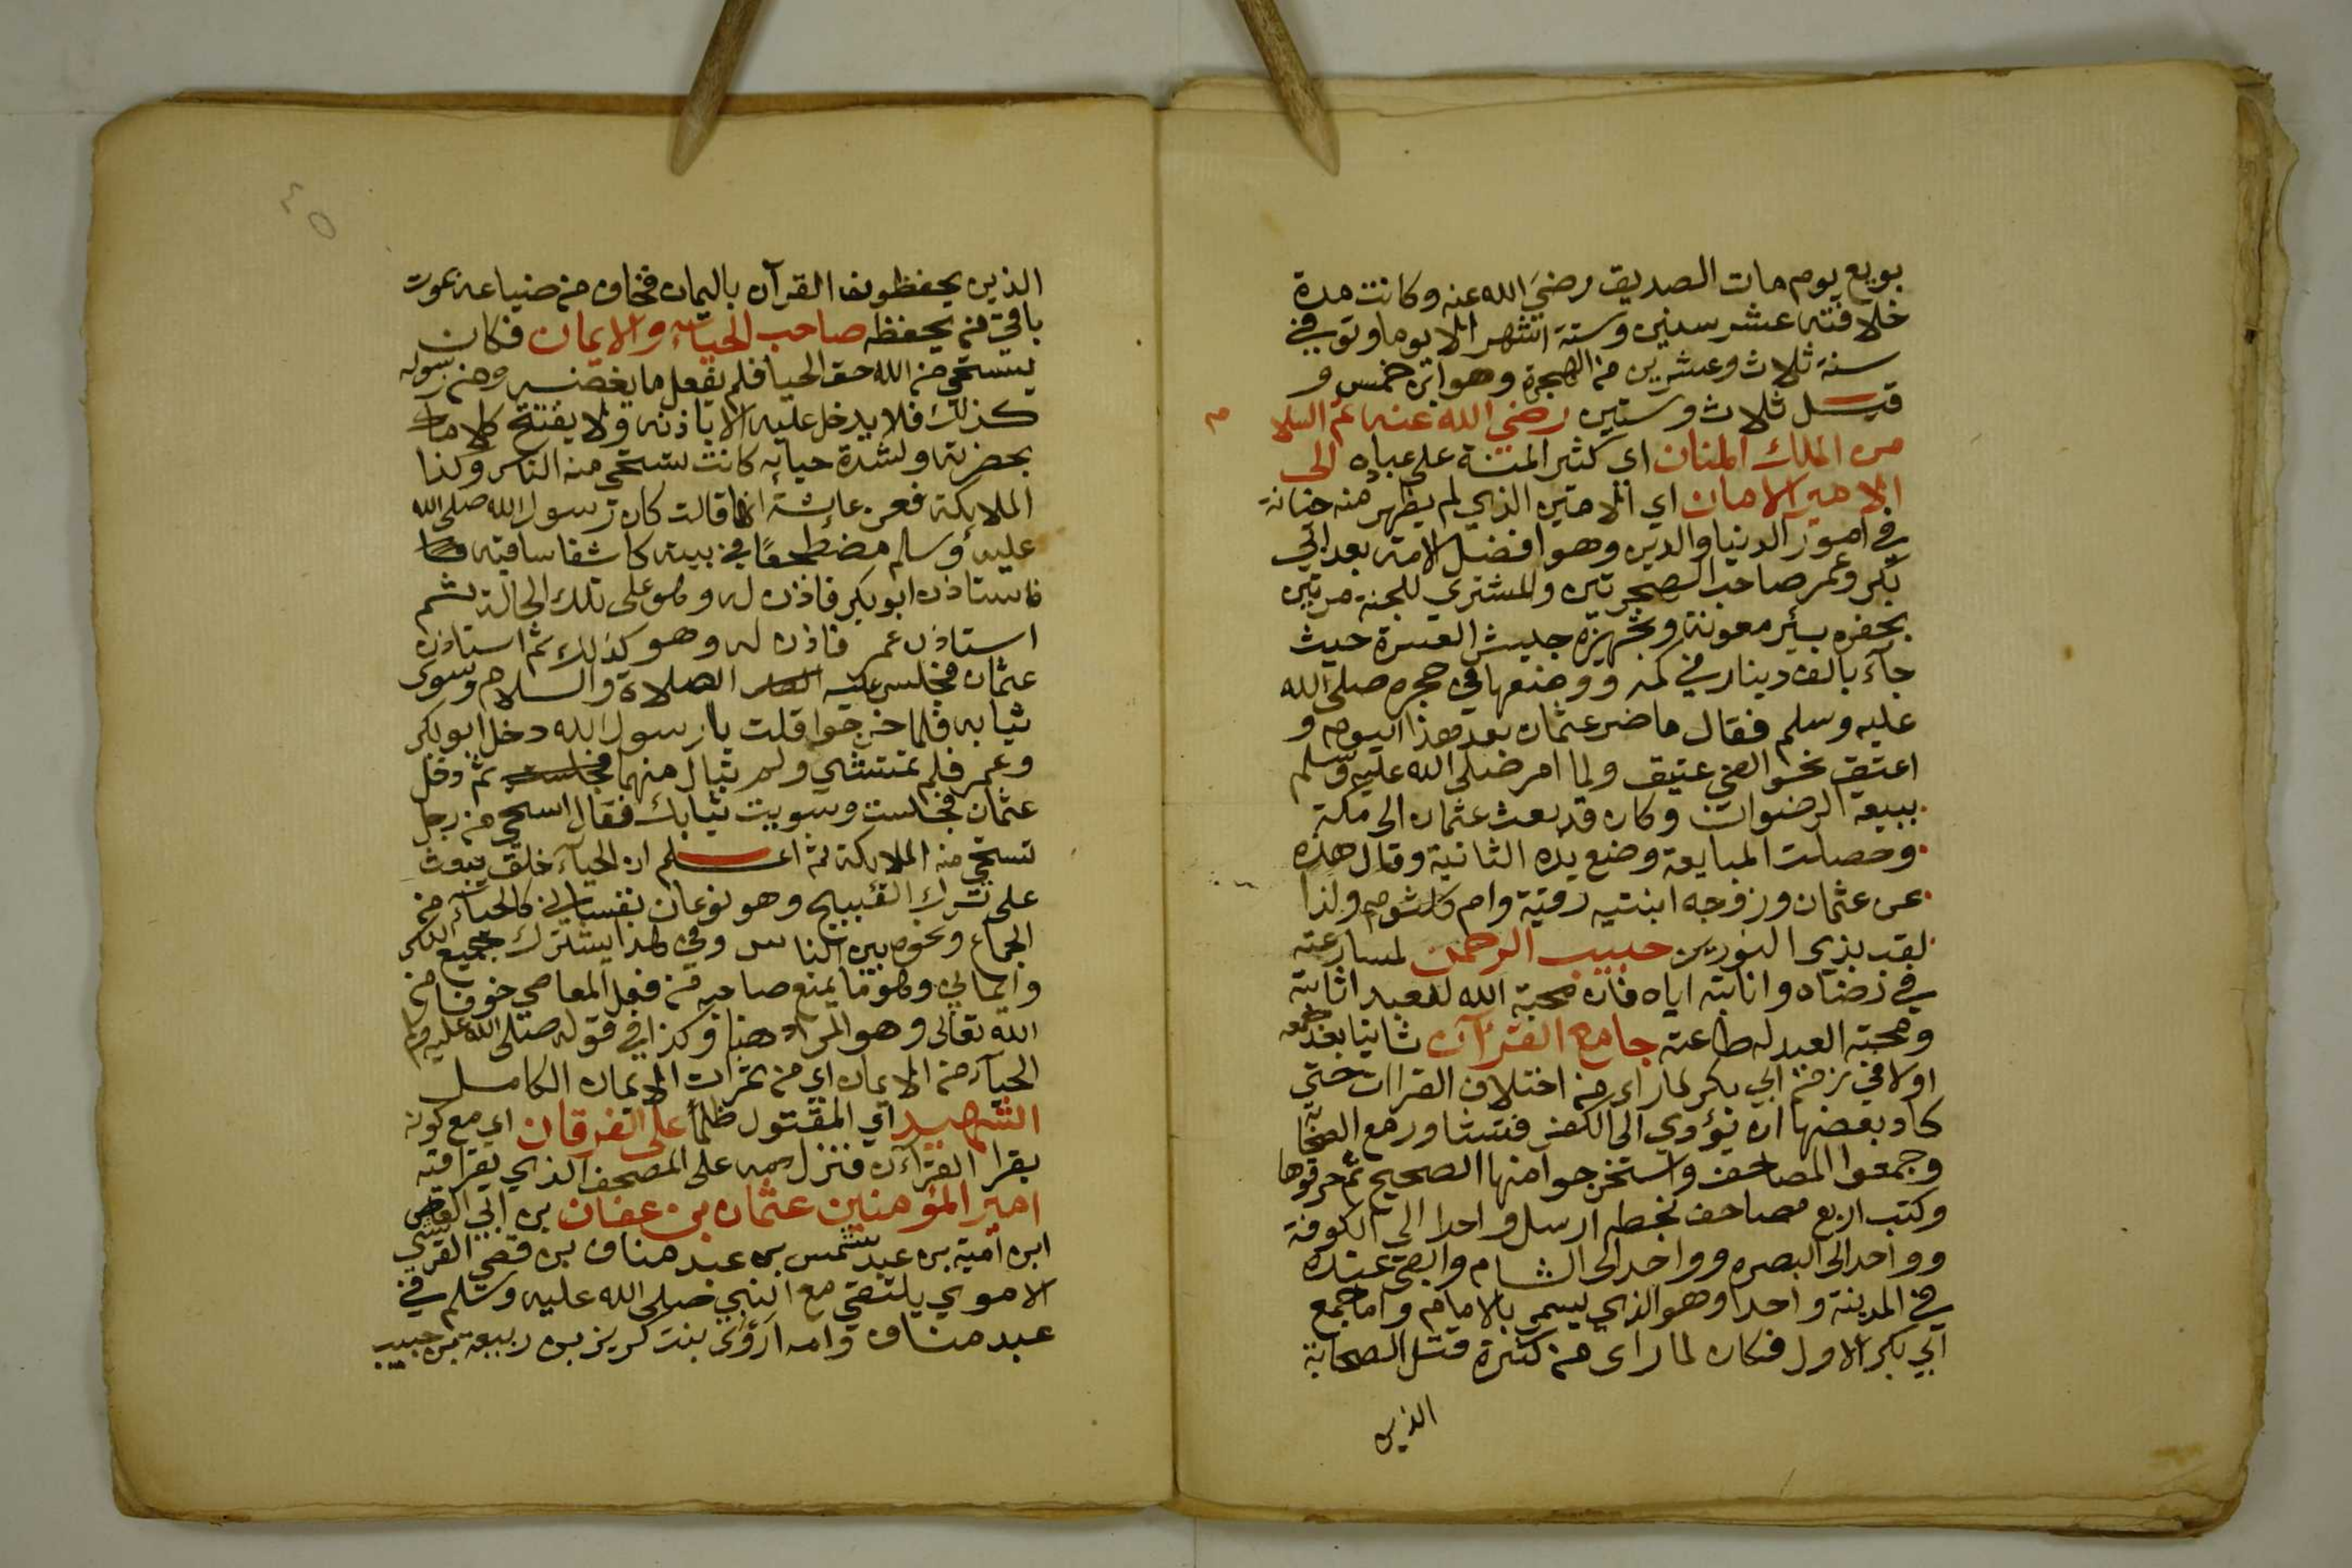 بويع يوم مات الصديق رضي الله عنه وكانت مدة
خلافته عشر سنين وستة اشهر الا يوما وتوفي في
سنة ثلاث وعشرين من الهجرة وهو ابن خمس و
قيل ثلاث وستين رضي الله عنه ثم السلام
من الملك المنان اي كثير المنة على عباده الى
الامير الامان اي الامين الذي لم يظهر منه خيانة
في امور الدنيا والدين وهو افضل الامة بعد ابي
بكر وعمر صاحب الهجرتين والمشتري للجنة مرتين
بحفره بئر معونة وتجهيزه جيش العسرة حيث
جآء بالف دينار في كمه ووضعها في حجره صلى الله
عليه وسلم فقال ما ضر عثمان بعد هذا اليوم و
اعتق نحو الفي عتيق ولما امر صلى الله عليه وسلم
ببيعة الرضوان وكان قد بعث عثمان الى مكة
وحصلت المبايعة وضع يده الثانية وقال هذه
عن عثمان وزوجه ابنتيه رقية وام كلثوم ولذا
لقب بذي النورين حبيب الرحمن لمسارعته
في رضاه وانابته اياه فان محبة الله للعبد اثابته
ومحبة العبد له طاعته جامع القرآن ثانيا بعد جمعه
اولا في زمن ابي بكر لما راى من اختلاف القراات حتى
كاد بعضها ان يؤدي الى الكفر فتشاور مع الصحابة
وجمعوا المصاحف واستخرجوا منها الصحيح ثم حرقوها
وكتب اربع مصاحف بخطه ارسل واحدا الى الكوفة
وواحد الى البصره وواحد الى الشام وابقى عنده
في المدينة واحدا وهو الذي يسمى بالامام واما جمع
ابي بكر الاول فكان لما راى من كثرة قتل الصحابة
الذين
٤٥
الذين يحفظون القرآن باليمان فخاف من ضياعه بموت
باقي من يحفظه صاحب الحياء والايمان فكان
يستحي من الله حق الحيا فلم يفعل ما يغضبه ومن رسوله
كذلك فلا يدخل عليه الا باذنه ولا يفتتح كلاما
بحضرته ولشدة حيايه كانت تستحي منه الناس وكذا
الملايكة فعن عائشة انها قالت كان رسول الله صلى الله
عليه وسلم مضطجعا في بيته كاشفا ساقيه
فاستاذن ابو بكر فاذن له وهو على تلك الحالة ثم
استاذن عمر فاذن له وهو كذلك ثم استاذن
عثمان فجلس عليه الصلاة والسلام وسوى
ثيابه فلما خرجوا قلت يا رسول الله دخل ابو بكر
وعمر فلم تهتش ولم تبال منهما ثم دخل
عثمان فجلست وسويت ثيابك فقال استحي من رجل
تستحي منه الملايكة ثم اعلم ان الحيآء خلق يبعث
على ترك القبيح وهو نوعان نفساني كالحيآء من
الجماع ونحوه بين الناس وفي هذا يشترك جميع الناس
وايماني وهو ما يمنع صاحبه من فعل المعاصي خوفا من
الله تعالى وهو المراد هنا وكذا في قوله صلى الله عليه وسلم
الحيآء من الايمان اي من ثمرات الايمان الكامل
الشهيد اي المقتول ظلما على الفرقان اي مع كونه
يقرا القرآن فنزل دمه على المصحف الذي يقرا فيه
امير المؤمنين عثمان بن عفان بن ابي العاص
ابن امية بن عبد شمس بن عبد مناف بن قصي القرشي
الاموي يلتقي مع النبي صلى الله عليه وسلم في
عبد مناف وامه اروى بنت كريز بن ربيعة بن حبيب